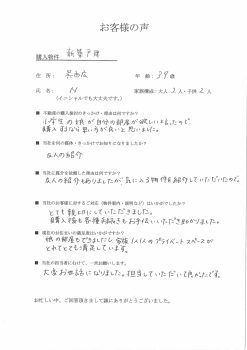 お客様の声
購入物件 新築戸建
住 所： 呉市広 年 齢：39歳
氏 名： N 家族構成：大人 2人・子供 2人
（イニシャルでも大丈夫です。）
■ 不動産の購入検討のきっかけ・理由は何ですか？
小学生の娘が自分の部屋が欲しいと言ったので
購入するなら早い方が良いと思いました。
■ 当社を何の媒体・きっかけでお知りになりましたか？
友人の紹介
■ 当社に仲介を依頼した理由は何ですか？
友人の紹介もありましたが、気に入る物件を紹介していただいたので。
■ 当社のお客様に対するご対応（物件案内・説明など）はいかがでしたか？
とても親切にしていただきました。
購入後も各種手続きもお手伝いいただき助かりました。
■ 現在のお住まいの満足度はいかがですか？
娘の部屋もできましたし、家族1人1人のプライベートスペースが
とれてとても満足しています。
■ 当社の担当者にむけて、一言お願いします。
大変お世話になりました。担当していただいて良かったです。
お忙しい中、ご回答頂きまして誠にありがとうございました。